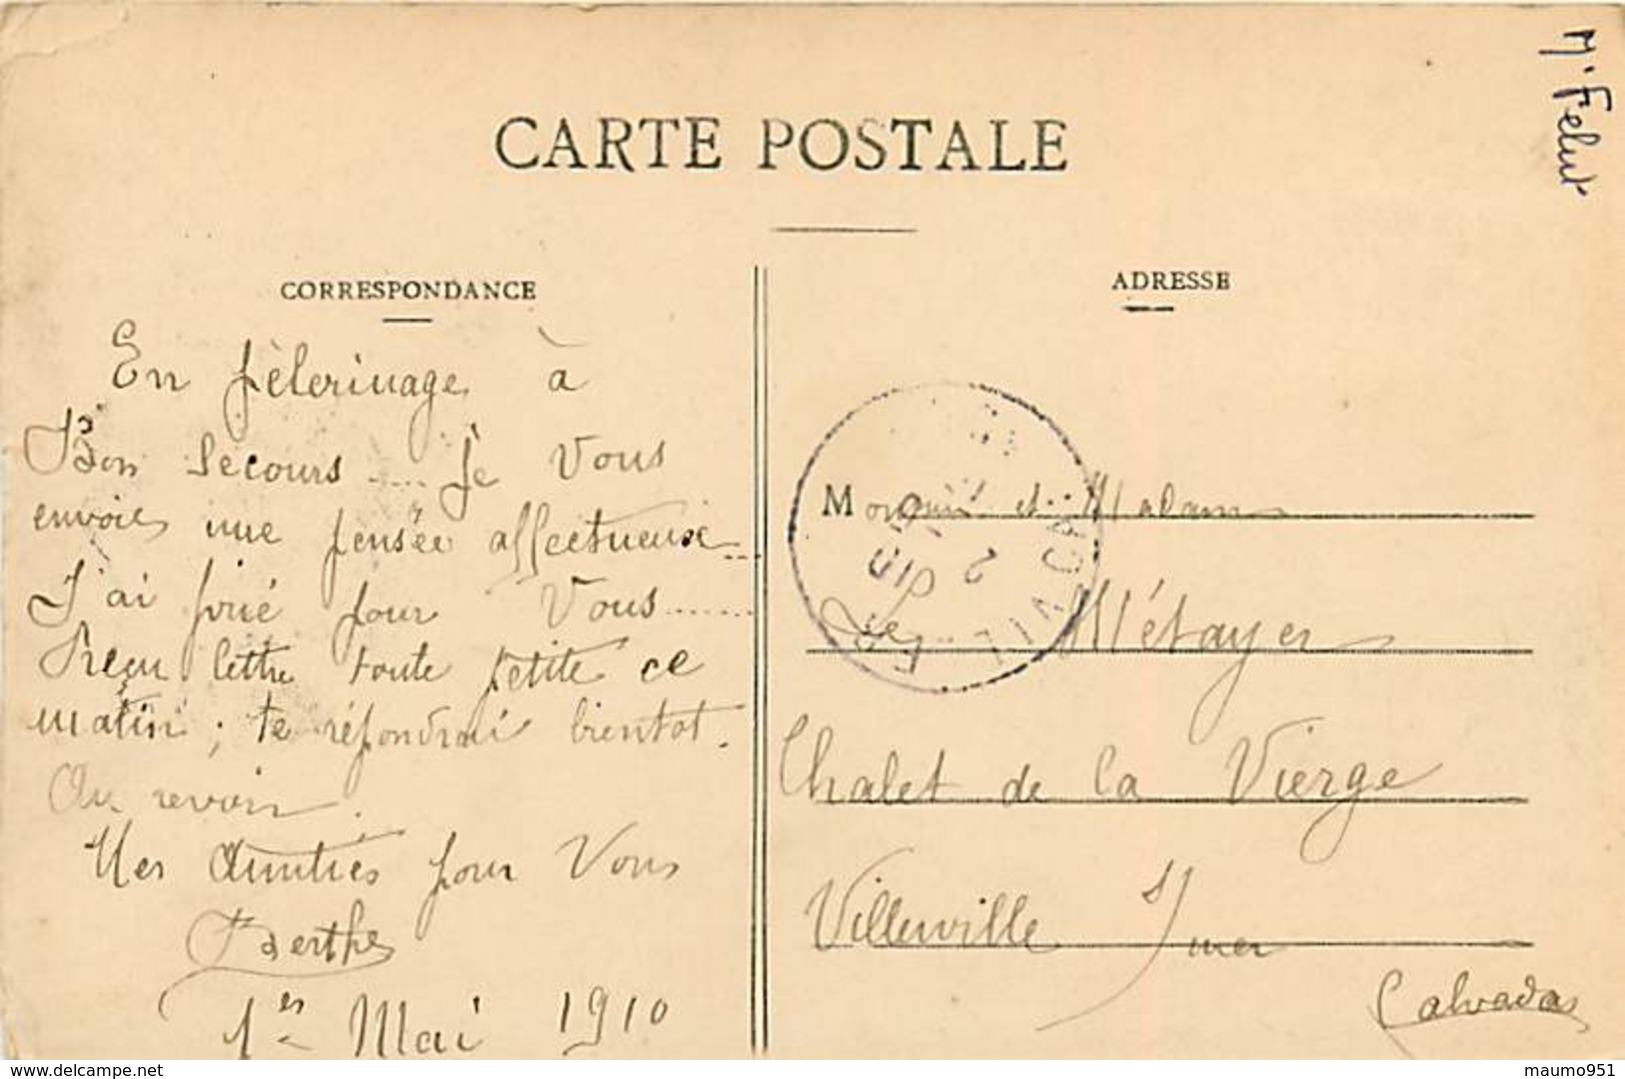 CARTE POSTALE
M. Felut
CORRESPONDANCE
En pèlerinage à
Bon Secours .... Je Vous
envoie une pensée affectueuse ...
J'ai prié pour Vous ......
Reçu lettre toute petite ce
matin ; te répondrai bientot.
Au revoir.
Mes Amitiés pour Vous
Berthe
1er Mai 1910
ADRESSE
Monsieur et Madame
Le Métayer
Chalet de la Vierge
Villerville s/ mer
Calvados
www.delcampe.net
maumo951